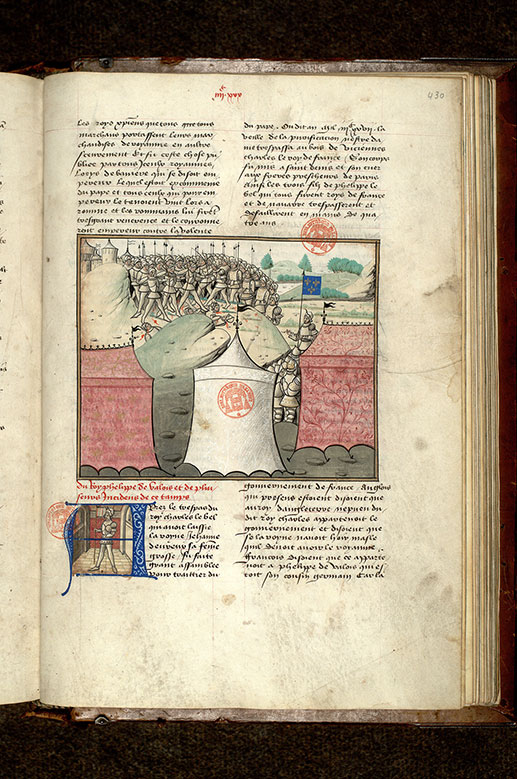 430
xxx.iiii
les roys xpiens que tous que tous
marchans portassent leurs mar
chandises de royaume en aultre
seurement Et fu ceste chose pu
bliee par tous iceulx royaumes
Loys de baviere qui se disoit em
pereur lequel estoit excommenie
du pape et tous ceulx qui pour em
pereur le tenoient vint lors a
romme et les rommains lui firent
tresgrant reverence et le couronne
rent empereur contre la voulente
du pape. On dit an mil iijc xxvij. la
veille de la purification nostre da
me trespassa au bois de viciennes
charles le roy de france / Son corps
fu mis a saint denis et son cuer
aux freres prescheurs de paris
Ainsi les trois filz de phelippe le
bel qui tous furent roys de france
et de navarre trespasserent et
defaillirent en mains de qua
tre ans
du Roy phelippe de valois et de plui
seurs Incidens de ce temps
Aprez le trespas du
roy charles le bel
qui avoit laissie
la royne Jehanne
deureux sa feme
grosse / fu faite
grant assamblee
pour traittier du
gouvernement de france. Anglois
qui presens estoient disoient que
au roy dangleterre nepveu du
dit roy charles appartenoit le
gouvernement et disoient que
se la royne navoit hoir masle
quil devoit avoir le royaume /
francois disoient que ce apparte
noit a phelippe de valois qui es
toit son cousin germain Car la